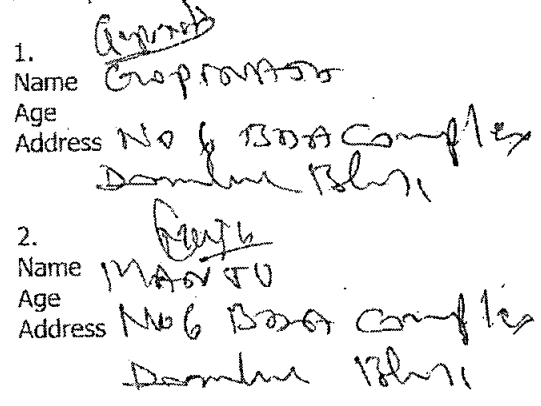 1.
Name GOPINATH
Age
Address No 6 BDA Complex
Domlur Bln
2.
Name MANJU
Age
Address No 6 BDA Complex
Domlur Bln